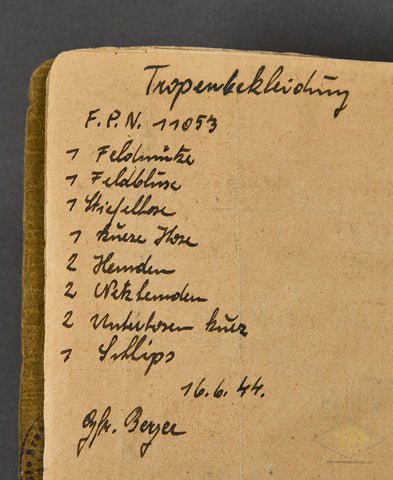 Tropenbekleidung
F.P.N. 11053
1 Feldmütze
1 Feldbluse
1 Stiefelhose
1 kurze Hose
2 Hemden
2 Netzhemden
2 Unterhosen kurz
1 Schlips
16.6.44.
Gfr. Berger